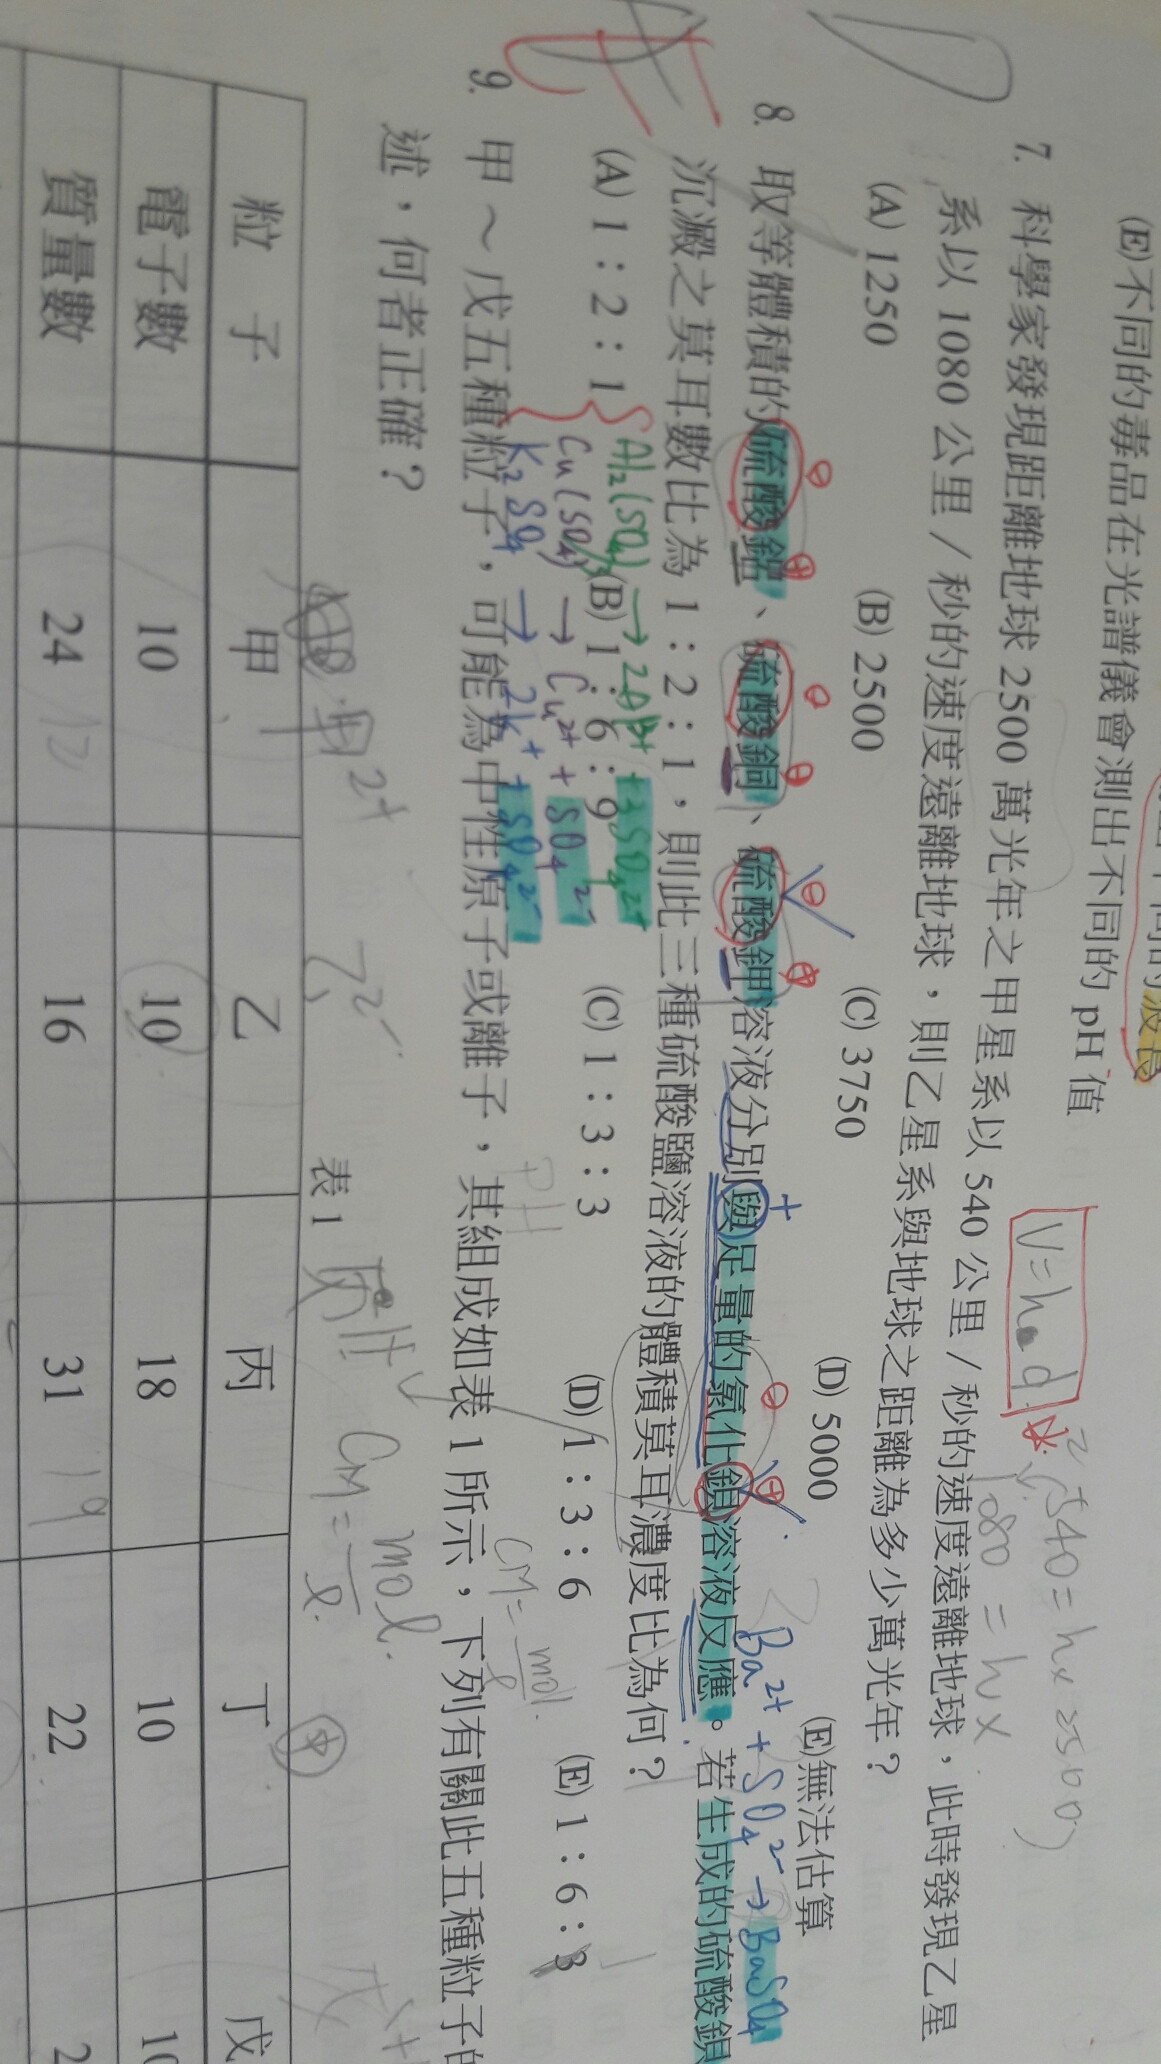 (E)不同的毒品在光譜儀會測出不同的 pH 值
7. 科學家發現距離地球 2500 萬光年之甲星系以 540 公里／秒的速度遠離地球，此時發現乙星
系以 1080 公里／秒的速度遠離地球，則乙星系與地球之距離為多少萬光年？
V=h d
540=hx2500
1080=hx
(A) 1250 (B) 2500 (C) 3750 (D) 5000 (E)無法估算
Ba2+ + SO4 2- → BaSO4
8. 取等體積的硫酸鋁、硫酸銅、硫酸鉀溶液分別與足量的氯化鋇溶液反應。若生成的硫酸鋇
沉澱之莫耳數比為 1：2：1，則此三種硫酸鹽溶液的體積莫耳濃度比為何？
(A) 1：2：1 (B) 1：6：9 (C) 1：3：3 (D) 1：3：6 (E) 1：6：3
Al2(SO4)3 → 2Al3+ + 3SO4 2-
Cu(SO4) → Cu2+ + SO4 2-
K2SO4 → 2K+ + SO4 2-
CM=mol/l
9. 甲～戊五種粒子，可能為中性原子或離子，其組成如表 1 所示，下列有關此五種粒子的
述，何者正確？
mol
CM=
l
甲2+
乙2-
表 1
粒 子 甲 乙 丙 丁 戊
電子數 10 10 18 10 10
質量數 24 16 31 22 2
12